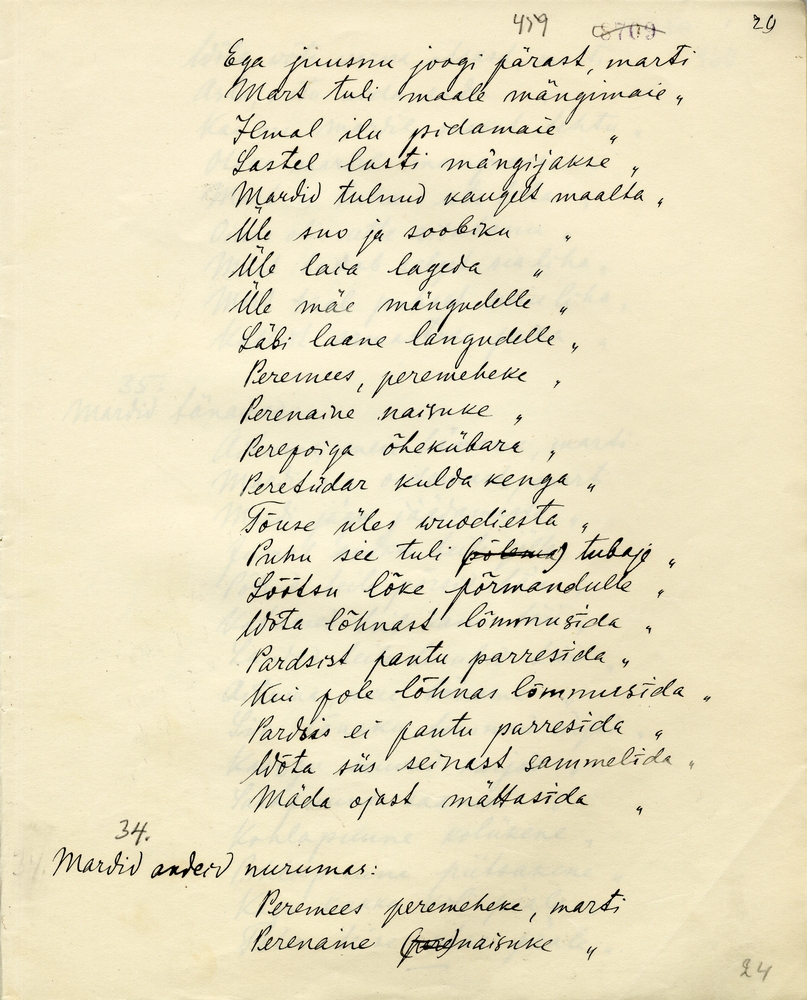 459 8709 29
Ega juusnu joogi pärast, marti
Mart tuli maale mängimaie „
Ilmal ilu pidamaie „
Lastel lusti mängijakse „
Mardid tulnud kaugelt maalta „
Üle suo ja soobiku „
Üle laia lageda „
Üle mäe mängudelle „
Läbi laane langudelle „
Peremees, peremeheke „
Perenaine naisuke „
Perepoiga õhekübara „
Peretüdar kulda kenga „
Tõuse üles wuodiesta „
Puhu see tuli (põlema) tubaje „
Lõõtsu lõke põrmandulle „
Wõta lõhnast lõmmusida „
Pardsist pantu parresida „
Kui pole lõhnas lõmmussida „
Pardsis ei pantu parresida „
Wõta siis seinast sammelida „
Mäda ojast mättasida „
34.
Mardid andeid nurumas:
Peremees peremeheke, marti
Perenaine (pere)naisuke „
24